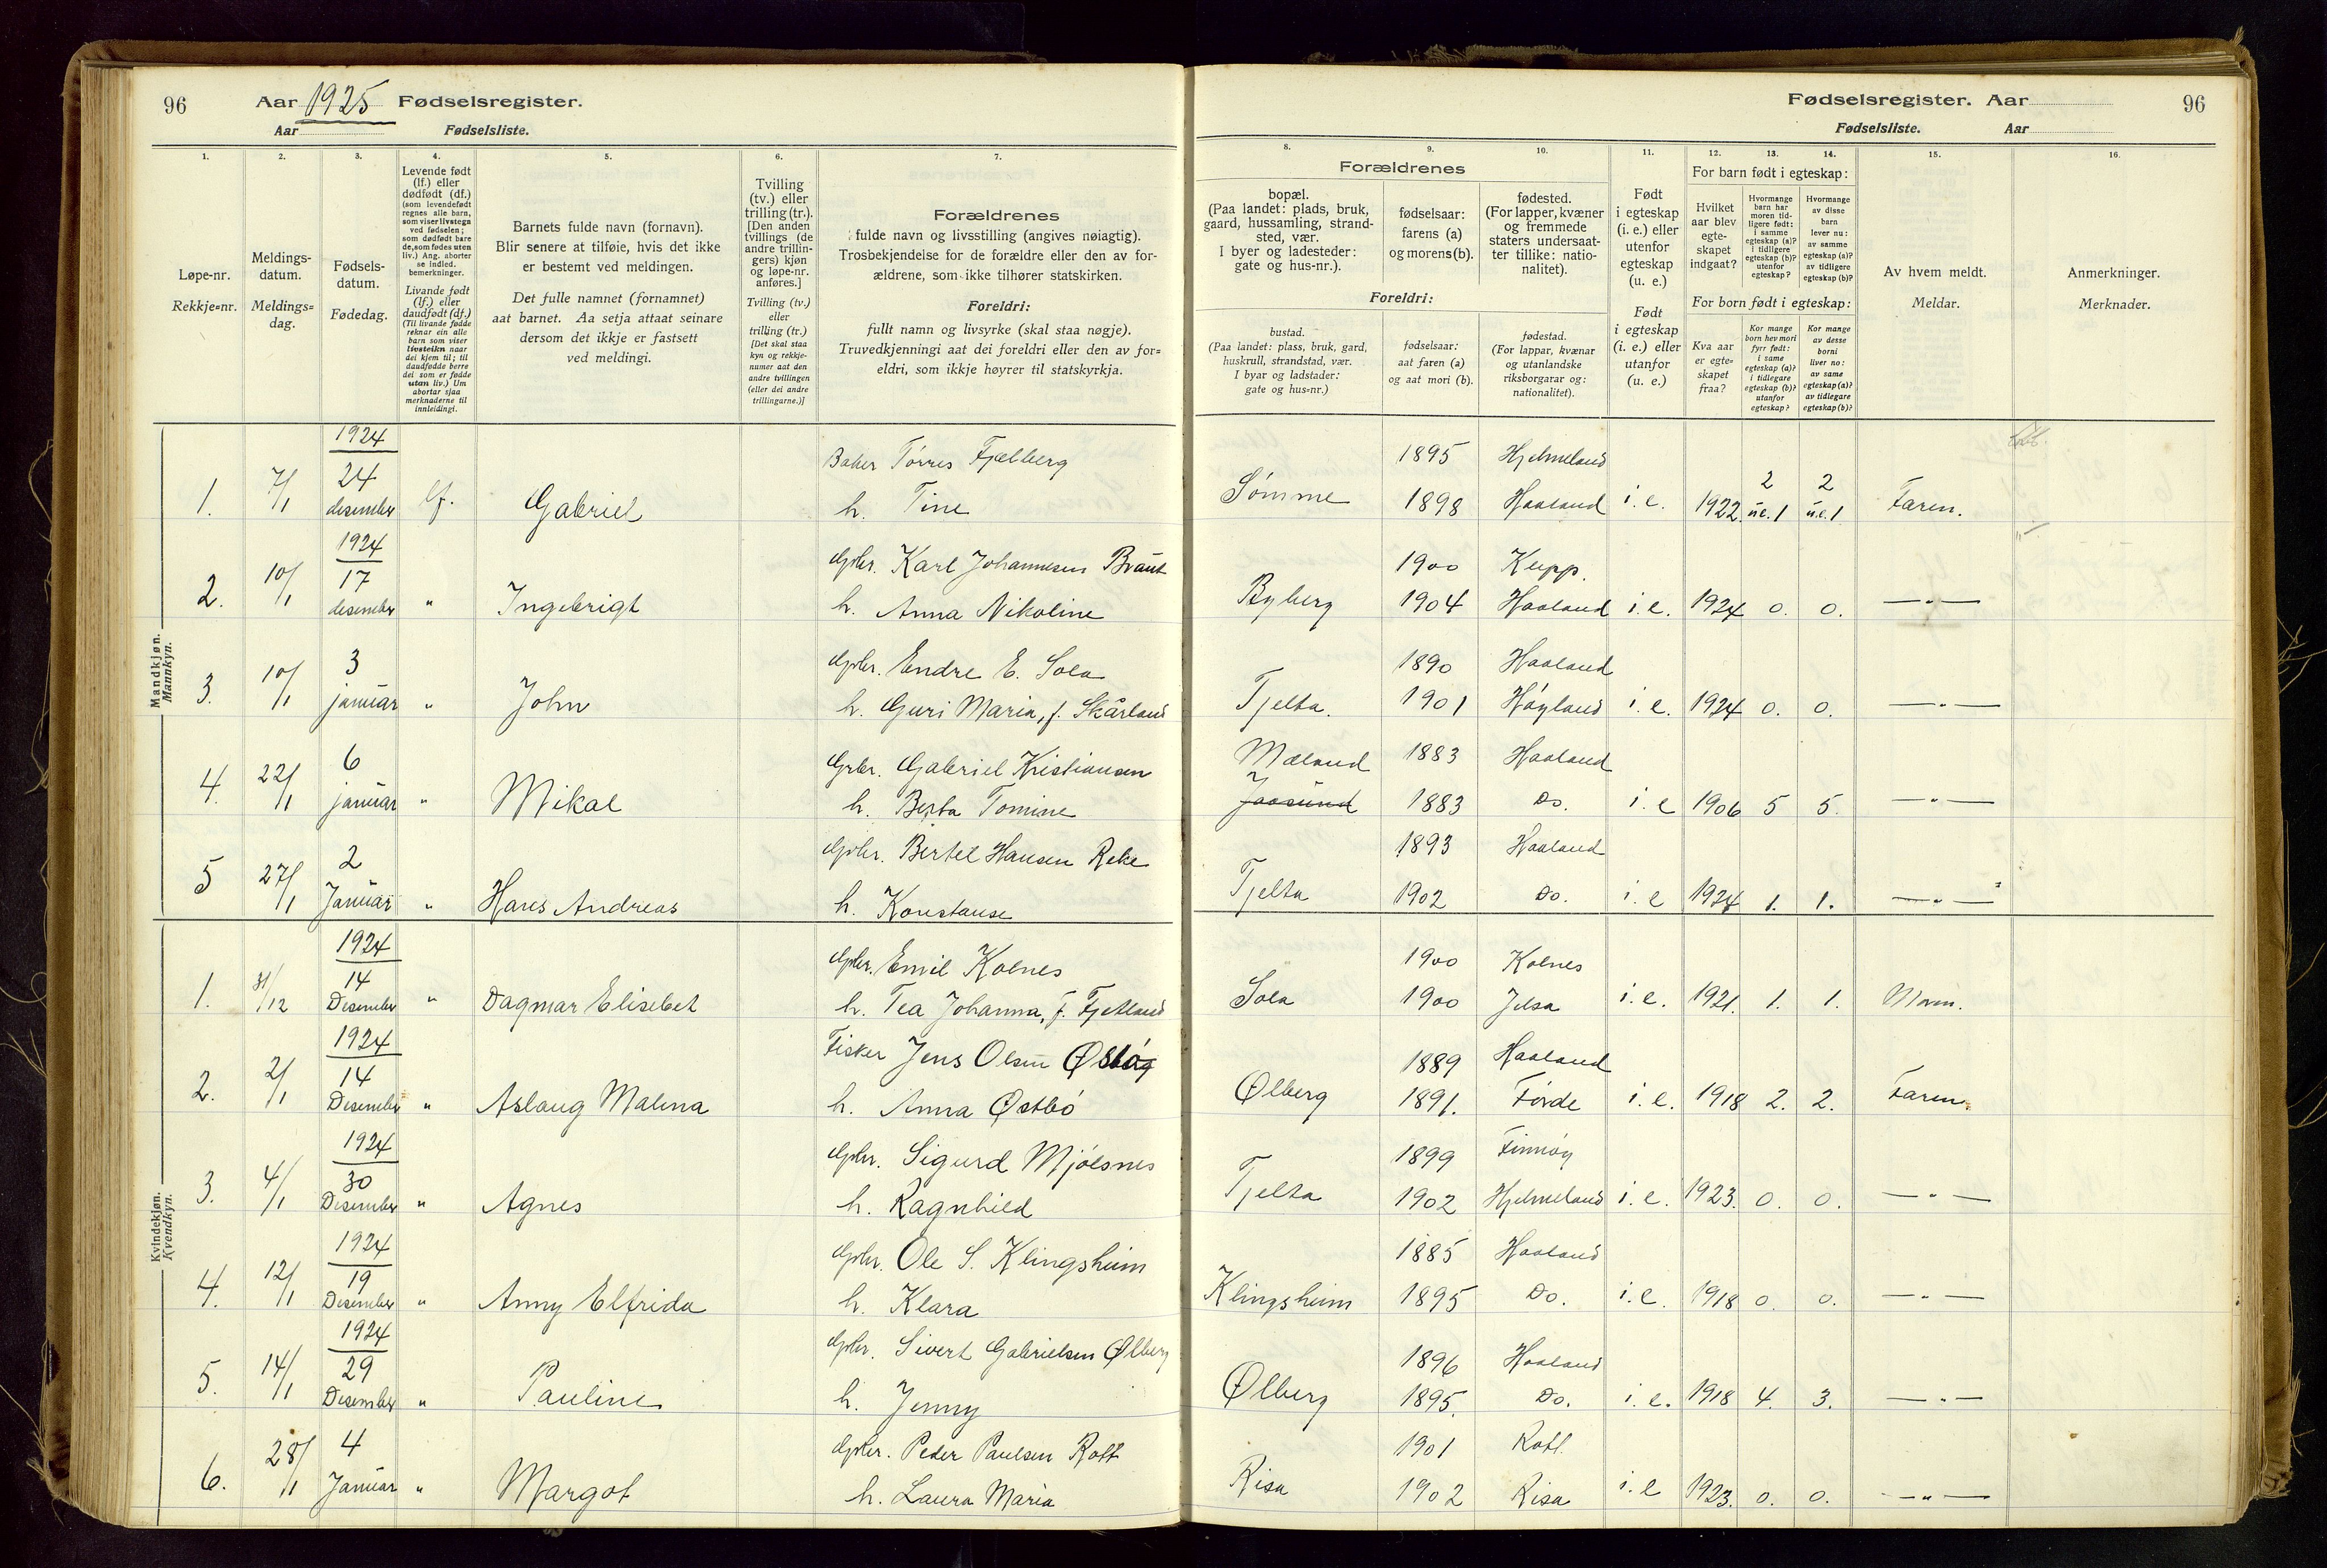 96 Aar 1925 Fødselsregister.
Aar Fødselsliste.
Fødselsregister. Aar 96
Fødselsliste. Aar
1. 2. 3. 4. 5. 6. 7. 8. 9. 10. 11. 12. 13. 14. 15. 16.
Løpe-nr.
Rekkje=nr.
Meldings-
datum.
Meldings=
dag.
Fødsels-
datum.
Fødedag.
Levende født
(lf.) eller
dødfødt (df.)
(som levendefødt
regnes alle barn,
som viser livstegn
ved fødselen;
som dødfødt bare
de, som fødes uten
liv.) Ang. aborter
se indled.
bemerkninger.
Livande født
(lf.) eller
daudfødt (df.)
(Til livande fødde
reknar ein alle
barn som viser
livsteikn naar
dei kjem til; til
daudfødde berre
dei som er fødde
utan liv.) Um
abortar sjaa
merknaderne til
innleidingi.
Barnets fulde navn (fornavn).
Blir senere at tilføie, hvis det ikke
er bestemt ved meldingen.
Det fulle namnet (fornamnet)
aat barnet. Aa setja attaat seinare
dersom det ikkje er fastsett
ved meldingi.
Tvilling
(tv.) eller
trilling (tr.).
[Den anden
tvillings (de
andre trillin-
gers) kjøn
og løpe-nr.
anføres.]
Tvilling (tv.)
eller
trilling (tr.)
[Det skal staa
kyn og rekkje-
numer aat den
andre tvillingen
(eller dei andre
trillingarne.)]
Forældrenes
fulde navn og livsstilling (angives nøiagtig).
Trosbekjendelse for de forældre eller den av for-
ældrene, som ikke tilhører statskirken.
Foreldri:
fullt namn og livsyrke (skal staa nøgje).
Truvedkjenningi aat dei foreldri eller den av for=
eldri, som ikkje høyrer til statskyrkja.
Forældrenes
bopæl.
(Paa landet: plads, bruk,
gaard, hussamling, strand-
sted, vær.
I byer og ladesteder:
gate og hus-nr.).
fødselsaar:
farens (a)
og morens (b).
fødested.
(For lapper, kvæner
og fremmede
staters undersaat-
ter tillike: natio-
nalitet).
Foreldri:
bustad.
(Paa landet: plass, bruk, gard,
huskrull, strandstad, vær.
I byar og ladstader:
gate og hus-nr.)
fødselsaar:
aat faren (a)
og aat mori (b).
fødestad.
(For lappar, kvænar
og utanlandske
riksborgarar og:
nationalitet).
Født
i egteskap
(i. e.) eller
utenfor
egteskap
(u. e.)
Født
i egteskap
(i. e.) eller
utanfor
(u. e.)
For barn født i egteskap:
Hvilket
aar blev
egte-
skapet
indgaat?
Hvormange
barn har
moren tid-
ligere født:
i samme
egteskap (a)?
i tidligere
egteskap (b)?
utenfor
egteskap?
Hvormange
av disse
barn
lever nu:
av samme
egteskap (a)?
av tidligere
egteskap (b)?
For born født i egteskap:
Kva aar
er egte=
skapet
fraa?
Kor mange
born hev mori
fyrr født:
i same
egteskap (a)?
i tidlegare
egteskap (b)?
utanfor
egteskap?
Kor mange
av desse
borni
liver no:
av same
egteskap (a)?
av tidlegare
egteskap (b)?
Av hvem meldt.
Meldar.
Anmerkninger.
Merknader.
Mandkjøn.
Mannkyn.
1924
Baker Tørres Fjelberg 1895 Hjelmeland
1. 7/1 24 desember lf. Gabriel h. Tine Sømme 1898 Haaland i. e. 1922. 2 u.e. 1 2 u.e. 1 Faren.
1924
Gbr. Karl Johannesen Braut 1900 Klepp.
2. 10/1 17 desember " Ingebrigt h. Anna Nikoline Byberg 1904 Haaland i. e. 1924 0. 0. — " —
Gbr. Endre E. Sola 1890 Haaland
3. 10/1 3 januar " John h. Guri Maria, f. Skårland Tjelta. 1901 Høyland i. e. 1924 0. 0. — " —
Gbr. Gabriel Kristiansen Mæland 1883 Haaland
4. 22/1 6 januar " Mikal h. Berta Tomine Jaasund 1883 Do. i. e 1906 5 5. — " —
Gbr. Bertel Hansen Reke 1893 Haaland
5 27/1 2 Januar " Hans Andreas h. Konstanse Tjelta 1902 Do. i. e 1924 1. 1. — " —
Kvindekjøn.
Kvendkyn.
1924
Gbr. Emil Kolnes 1900 Kolnes
1. 31/12 14 Desember " Dagmar Elisebet h. Tea Johanna, f. Fjetland Sola 1900 Jelsa i. e. 1921. 1. 1. Moren.
1924
Fisker Jens Olsen Østbø 1889 Haaland
2. 2/1 14 Desember " Aslaug Malena h. Anna Østbø Ølberg 1891. Førde i. e. 1918 2. 2. Faren.
1924
Gbr. Sigurd Mjølsnes 1899 Finnøy
3. 4/1 30 Desember " Agnes h. Ragnhild Tjelta 1902 Hjelmeland i. e. 1923. 0. 0. — " —
1924
Gbr. Ole S. Klingsheim 1885 Haaland
4. 12/1 19 Desember " Anny Elfrida h. Klara Klingsheim 1895 Do. i. e. 1918 0. 0. — " —
1924
Gbr. Sivert Gabrielsen Ølberg 1896 Haaland
5. 14/1 29 Desember " Pauline h. Jenny Ølberg 1895. Do. i. e. 1918 4. 3. — " —
Gbr. Peder Paulsen Rott 1901 Rott.
6. 28/1 4 Januar " Margot h. Laura Maria Risa 1902 Risa i. e 1923. 0. 0. — " —